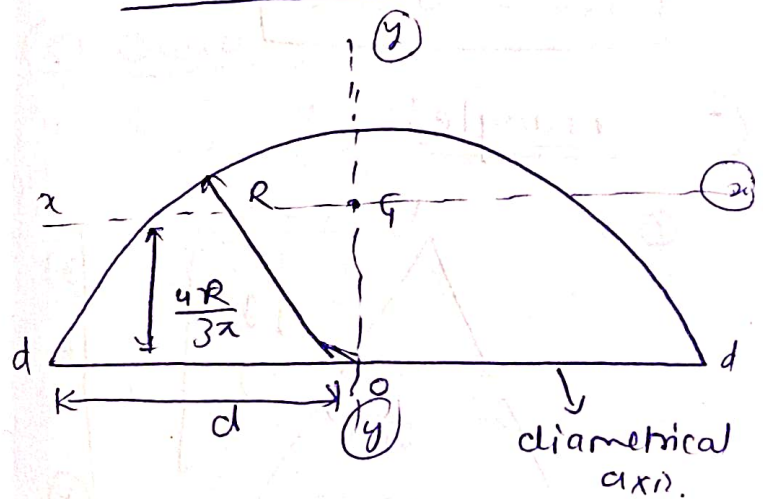 y
x R G x
4R
3π
d d
O
d y
diametrical
axis.